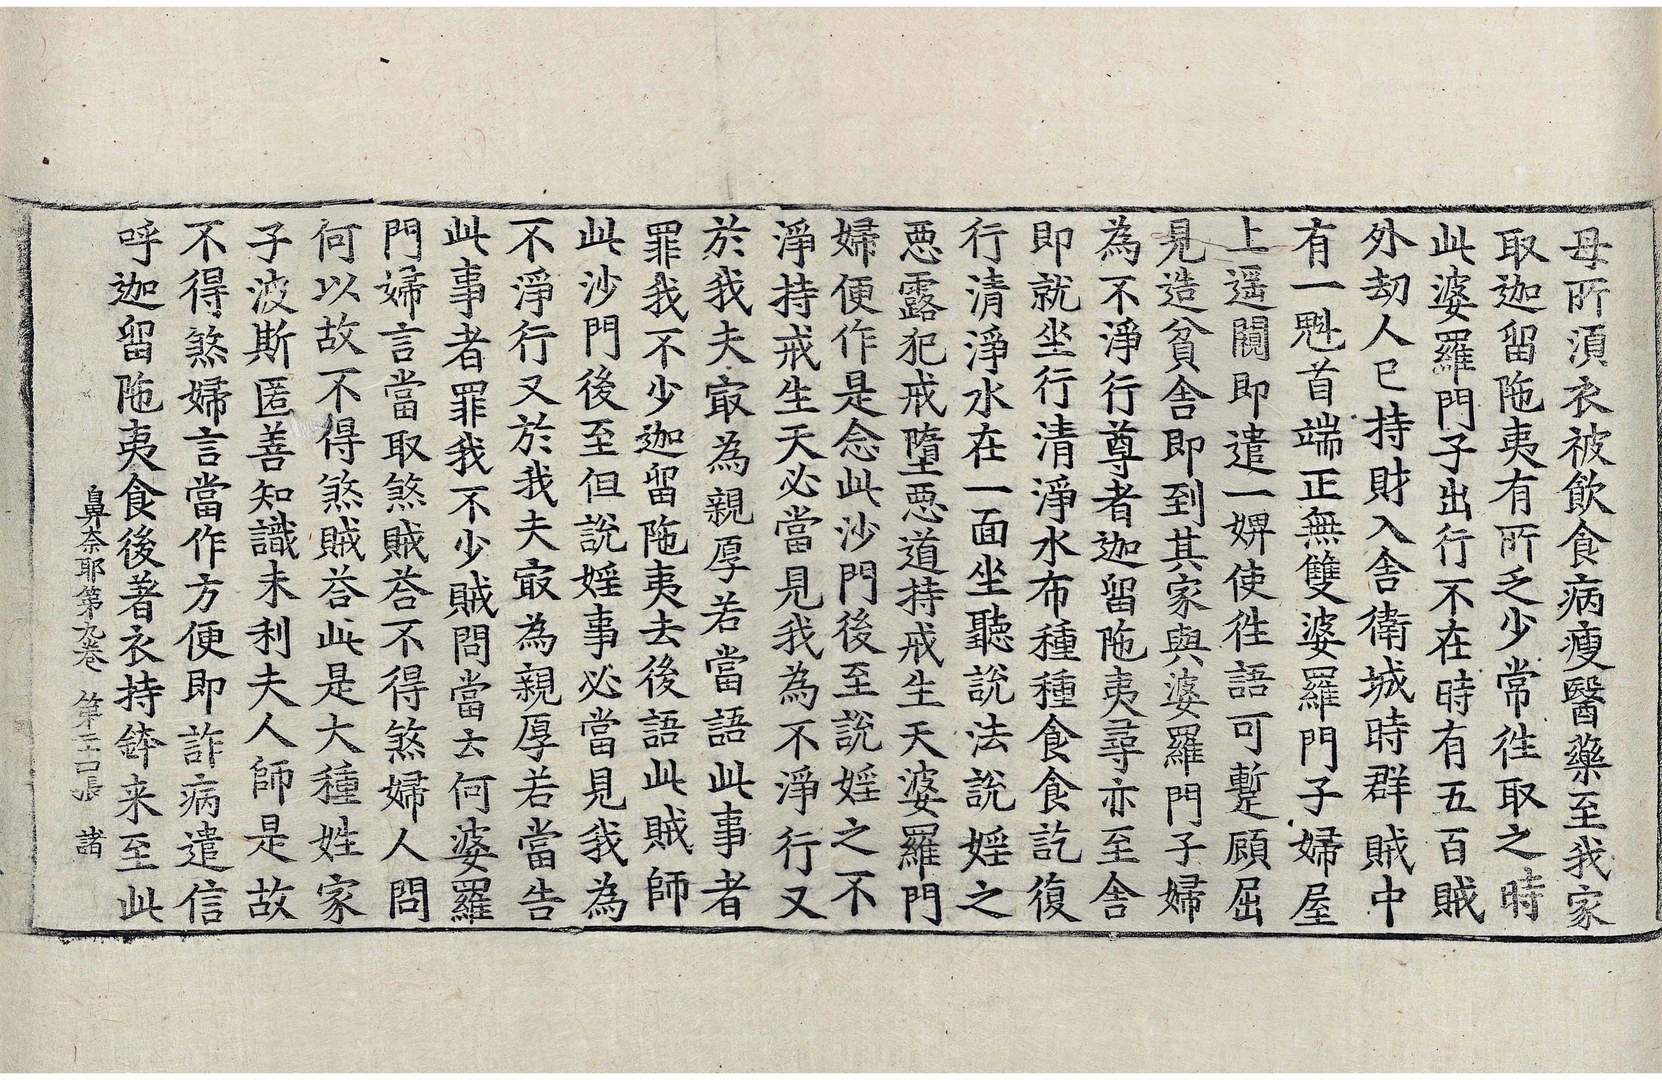 母所須衣被飲食病瘦醫藥至我家
取迦留陁夷有所乏少常往取之時
此婆羅門子出行不在時有五百賊
外劫人已持財入舍衛城時群賊中
有一魁首端正無雙婆羅門子婦屋
上遥闚即遣一婢使往語可蹔顧屈
見造貧舍即到其家與婆羅門子婦
為不淨行尊者迦留陁夷尋亦至舍
即就坐行清淨水布種種食食訖復
行清淨水在一面坐聽說法說婬之
惡露犯戒墮惡道持戒生天婆羅門
婦便作是念此沙門後至說婬之不
淨持戒生天必當見我為不淨行又
於我夫㝡為親厚若當語此事者
罪我不少迦留陁夷去後語此賊師
此沙門後至但說婬事必當見我為
不淨行又於我夫㝡為親厚若當告
此事者罪我不少賊問當云何婆羅
門婦言當取煞賊荅不得煞婦人問
何以故不得煞賊荅此是大種姓家
子波斯匿善知識末利夫人師是故
不得煞婦言當作方便即詐病遣信
呼迦留陁夷食後著衣持鉢来至此
鼻奈耶第九卷 第二十張 諸